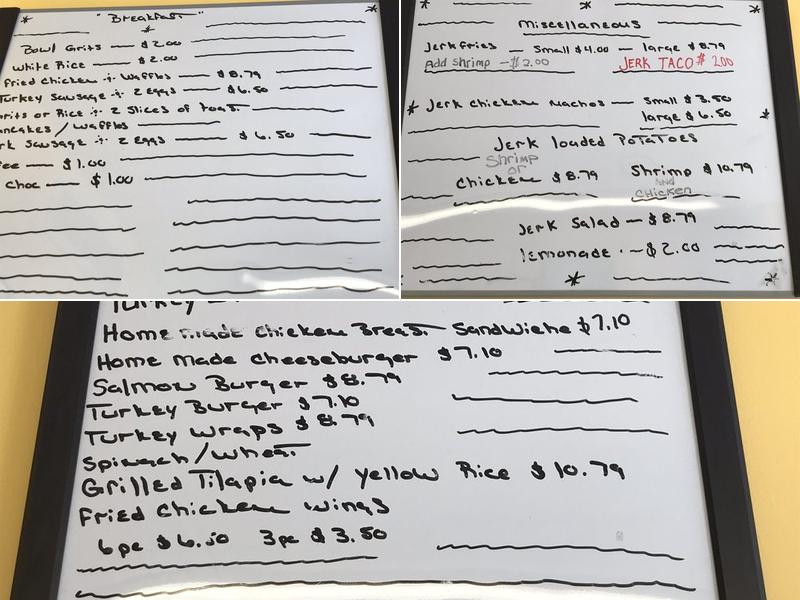 "Breakfast"
Bowl Grits - $2.00
White Rice - $2.00
Fried Chicken + Waffles - $8.79
Turkey Sausage + 2 Eggs - $6.50
Grits or Rice + 2 Slices of Toast
Pancakes / Waffles
Sausage + 2 Eggs - $6.50
$1.00
Choc - $1.00
Miscellaneous
Jerk fries - Small $4.00 - large $8.79
Add shrimp - $2.00 JERK TACO $2.00
* Jerk Chicken Nachos - Small $3.50
large $6.50
Jerk loaded Potatoes
Shrimp
or
Chicken $8.79 Shrimp $10.79
And
Chicken
Jerk Salad - $8.79
lemonade - $2.00
Turkey
Home made Chicken Breast Sandwiche $7.10
Home made Cheeseburger $7.10
Salmon Burger $8.79
Turkey Burger $7.10
Turkey wraps $8.79
Spinach/wheat
Grilled Tilapia w/ Yellow Rice $10.79
Fried Chicken wings
6pc $6.50 3pc $3.50